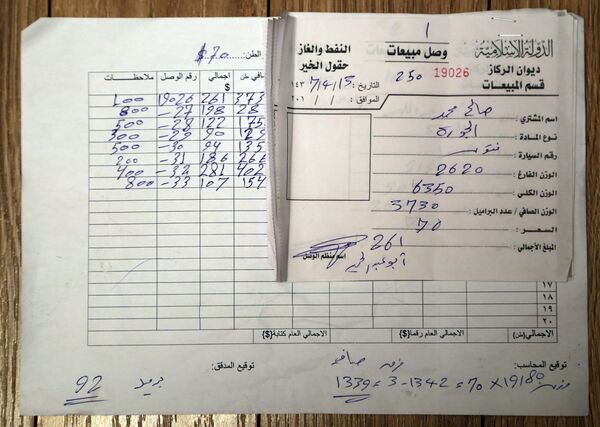 الدولة الإسلامية
ديوان الركاز
قسم المبيعات
وصل مبيعات
250 19026
النفط والغاز
حقول الخير
التاريخ : 7/4/15 ١٤٣
الموافق : / / ٢٠١
اسم المشتري :
نوع المادة :
رقم السيارة :
الوزن الفارغ : 2620
الوزن الكلي : 6350
الوزن الصافي / عدد البراميل : 3730
السعر : 70
المبلغ الأجمالي : 261
اسم منظم الوصل
الطن: $70
صافي طن اجمالي $ رقم الوصل ملاحظات
373 261 19026 100
28 198 -27 800
175 122 -28 500
90 -29 300
135 94 -30 500
266 186 -31 200
402 281 -32 400
154 107 -33 800
17
18
19
20
الاجمالي (طن) الاجمالي العام رقما($) الاجمالي العام كتابة($)
توقيع المحاسب: توقيع المدقق:
1339 = 3 - 1342 = 70 × 19180
92